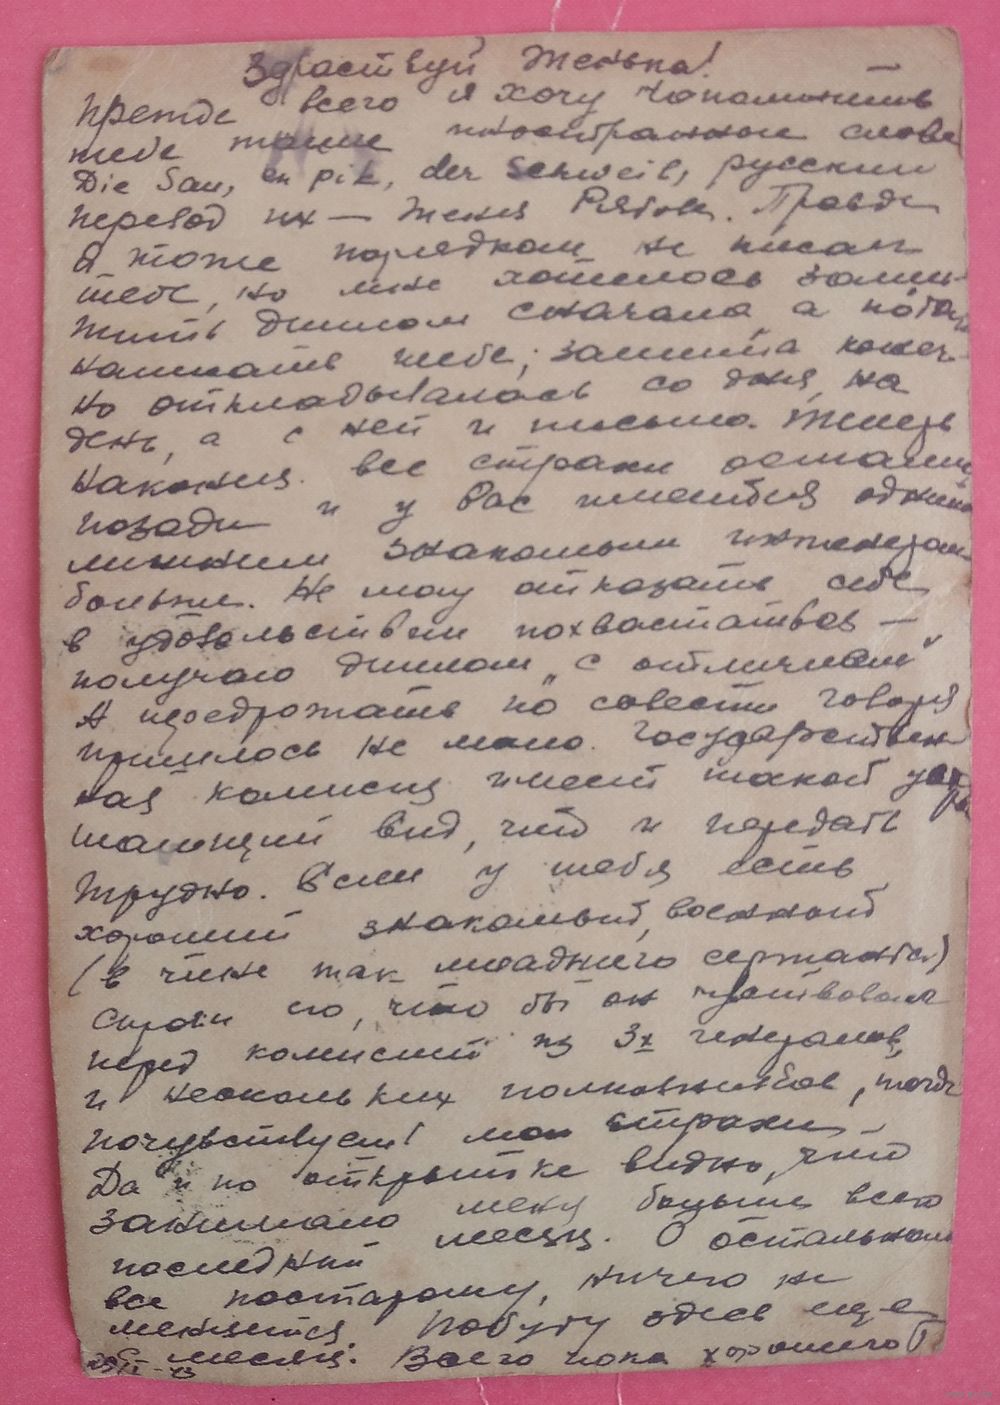 Здраствуй Женька!
Прежде всего я хочу напомнить
тебе такие иностранные слова
Die Sau, der Schweik, русский
перевод их — Женя Рябов. Правда
я тоже порядком не писал
тебе, но мне хотелось защи-
тить диплом сначала, а потом
написать тебе; защита конеч-
но откладывалась со дня на
день, а с ней и письмо. Теперь
наконец все страхи остались
позади и у Вас имеется одним
лишним знакомым инженером
больше. Не могу отказать себе
в удовольствии похвастаться —
получаю диплом „с отличием"
А подрожать по совести говоря
пришлось не мало. Государствен
ная комисия имеет такой уст
ра
шающий вид, что и передать
трудно. Если у тебя есть
хороший знакомый, военный
(в чине так младшего сержанта)
спроси его, что бы он чувствовал
перед комисией из 3х генералов,
и нескольких полковников, тогда
почувствуешь мои страхи.
Да и по открытке видно, что
занимало меня больше всего
последний месяц. В остальном
все постарому, ничего не
меняется. Побуду здесь еще
месяц. Всего пока хорошего